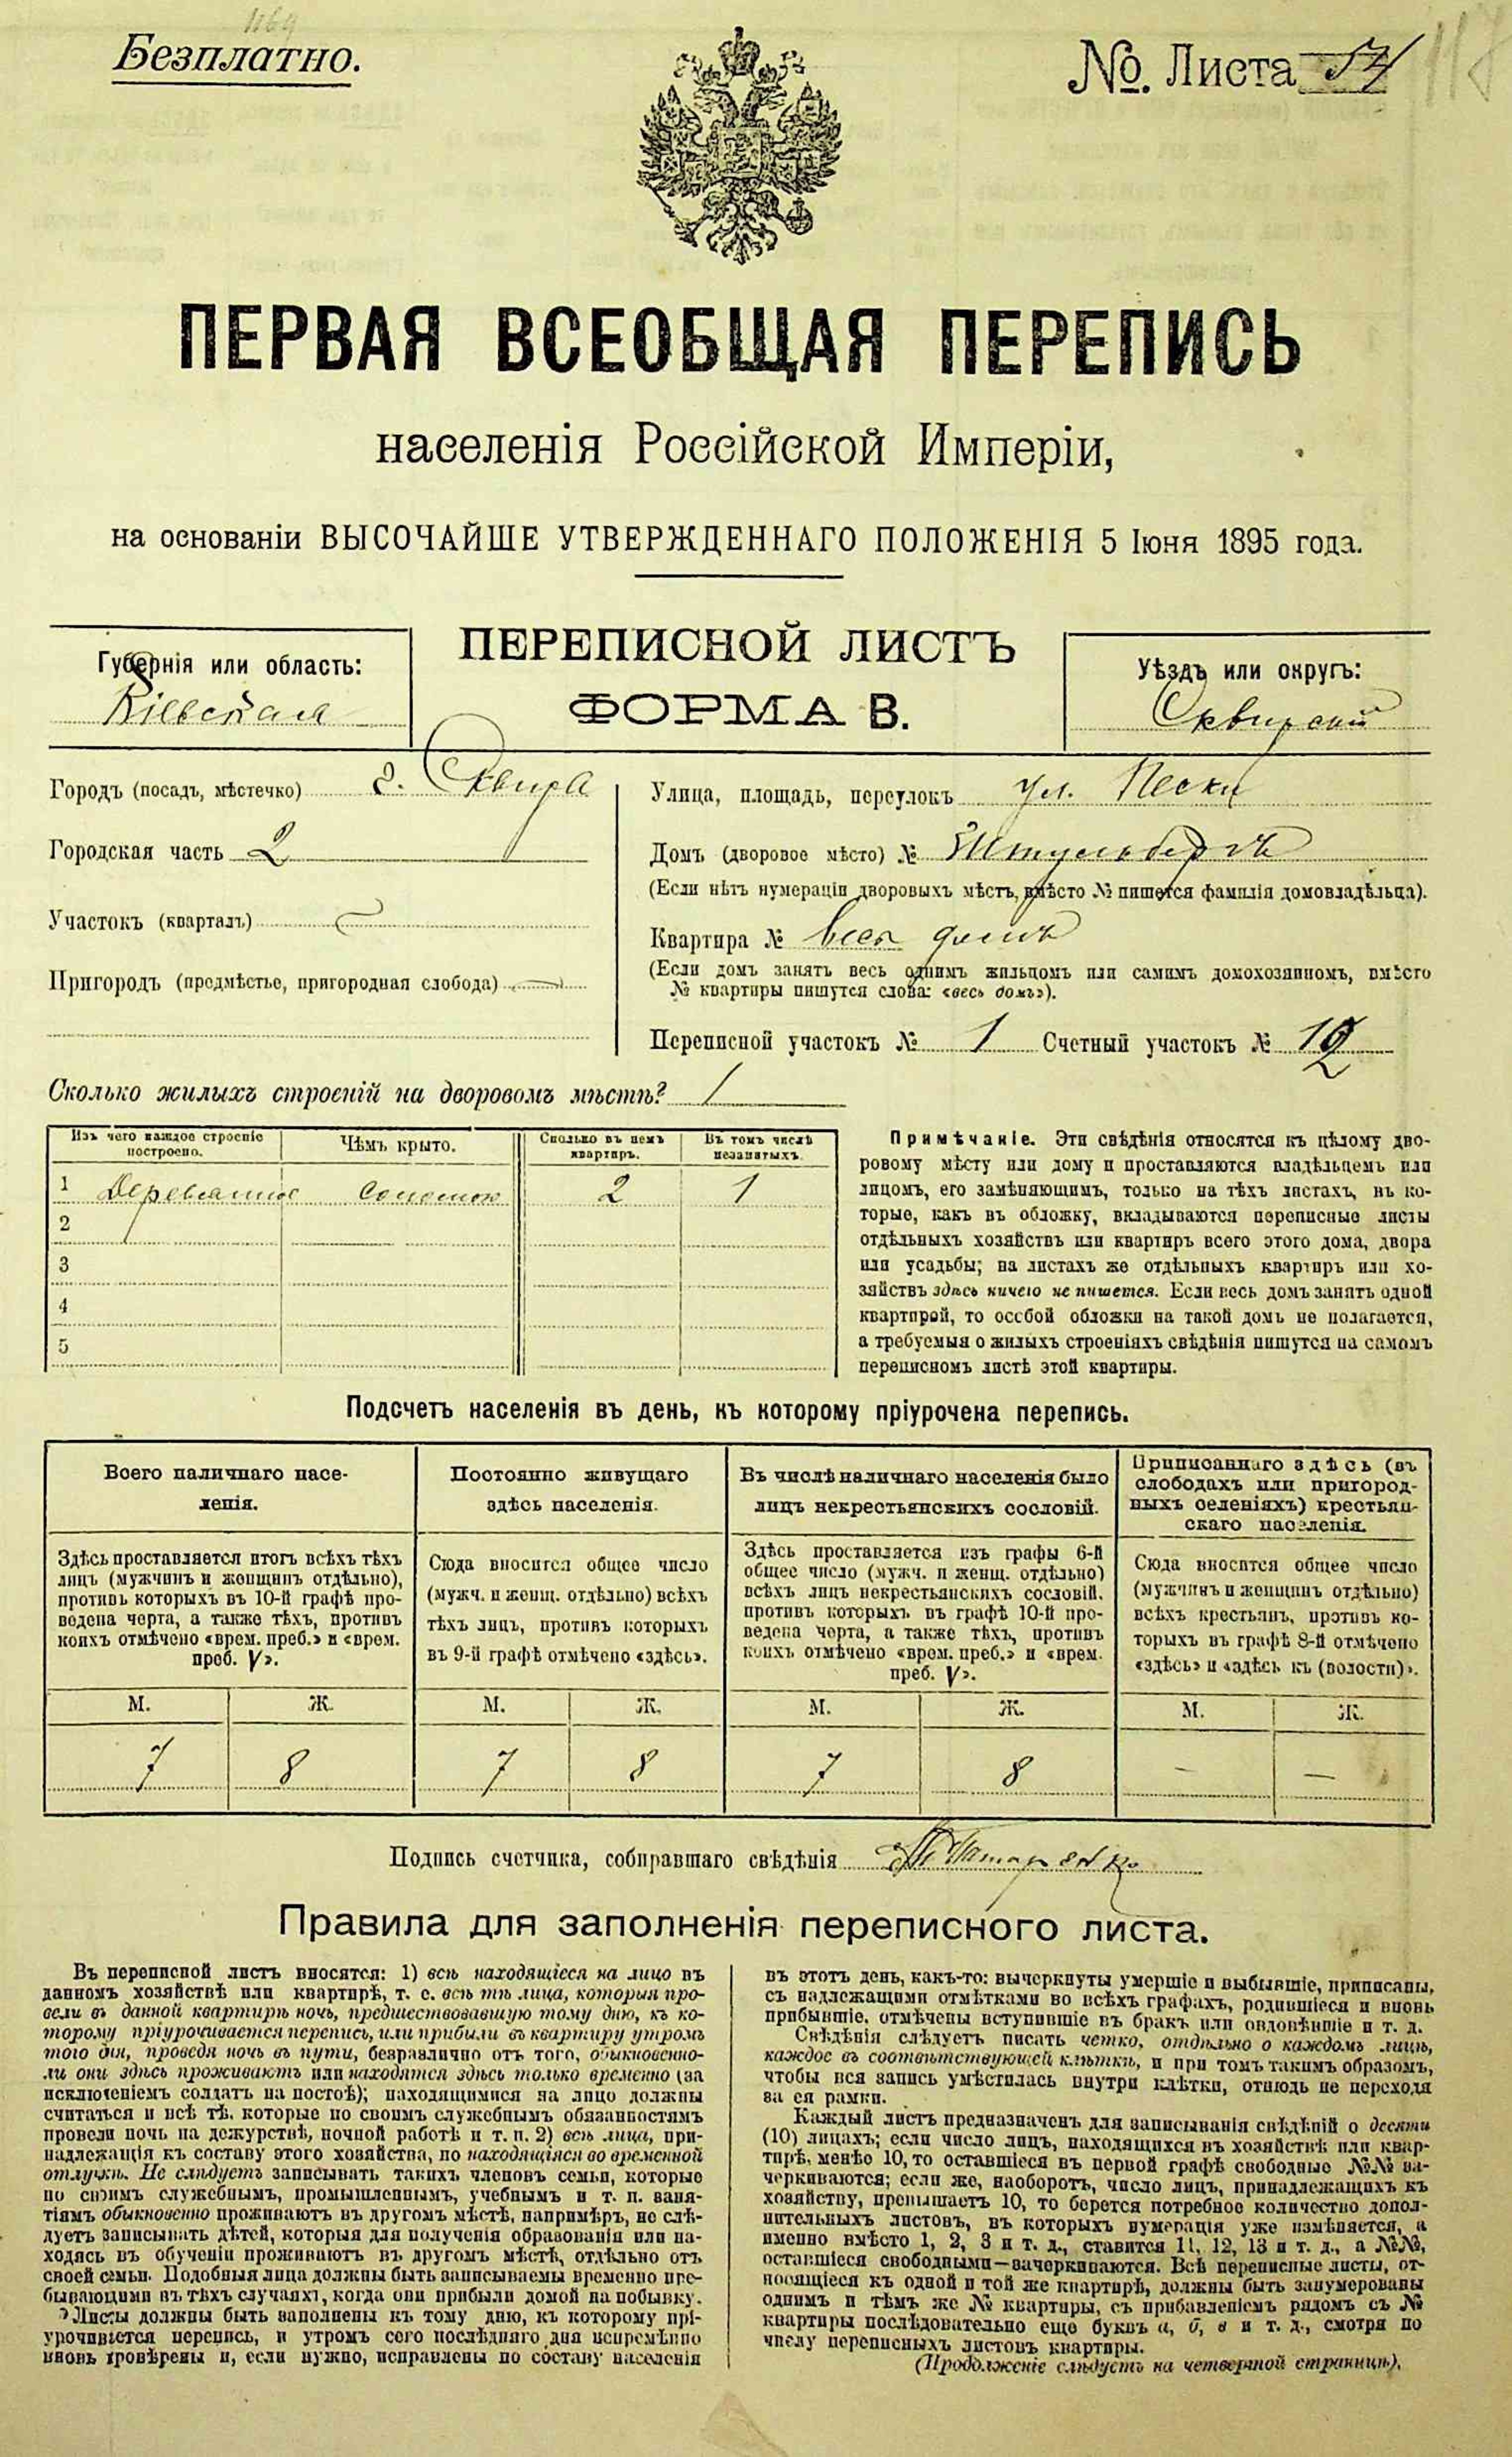 1169
Безплатно.
№. Листа 54
118
ПЕРВАЯ ВСЕОБЩАЯ ПЕРЕПИСЬ
населенія Россійской Имперіи,
на основаніи ВЫСОЧАЙШЕ УТВЕРЖДЕННАГО ПОЛОЖЕНІЯ 5 Іюня 1895 года.
ПЕРЕПИСНОЙ ЛИСТЪ
ФОРМА В.
Губернія или область:
Кіевская
Уѣздъ или округъ:
Сквирскій
Городъ (посадъ, мѣстечко) г. Сквира
Городская часть 2
Участокъ (кварталъ)
Пригородъ (предмѣстье, пригородная слобода)
Улица, площадь, переулокъ ул. Пески
Домъ (дворовое мѣсто) № Штульбергъ
(Если нѣтъ нумераціи дворовыхъ мѣстъ, вмѣсто № пишется фамилія домовладѣльца).
Квартира № весь домъ
(Если домъ занятъ весь однимъ жильцомъ или самимъ домохозяиномъ, вмѣсто
№ квартиры пишутся слова: «весь домъ»).
Переписной участокъ № 1 Счетный участокъ № 12
Сколько жилыхъ строеній на дворовомъ мѣстѣ? 1
Изъ чего каждое строеніе
построено.
Чѣмъ крыто.
Сколько въ немъ
квартиръ.
Въ томъ числѣ
незанятыхъ.
1 Деревянное соломою 2 1
2
3
4
5
Примѣчаніе. Эти свѣдѣнія относятся къ цѣлому дво-
ровому мѣсту или дому и проставляются владѣльцемъ или
лицомъ, его замѣняющимъ, только на тѣхъ листахъ, въ ко-
торые, какъ въ обложку, вкладываются переписные листы
отдѣльныхъ хозяйствъ или квартиръ всего этого дома, двора
или усадьбы; на листахъ же отдѣльныхъ квартиръ или хо-
зяйствъ здѣсь ничего не пишется. Если весь домъ занятъ одной
квартирой, то особой обложки на такой домъ не полагается,
а требуемыя о жилыхъ строеніяхъ свѣдѣнія пишутся на самомъ
переписномъ листѣ этой квартиры.
Подсчетъ населенія въ день, къ которому пріурочена перепись.
Всего наличнаго насе-
ленія.
Здѣсь проставляется итогъ всѣхъ тѣхъ
лицъ (мужчинъ и женщинъ отдѣльно),
противъ которыхъ въ 10-й графѣ про-
ведена черта, а также тѣхъ, противъ
коихъ отмѣчено «врем. преб.» и «врем.
преб. V».
М. Ж.
7 8
Постоянно живущаго
здѣсь населенія.
Сюда вносится общее число
(мужч. и женщ. отдѣльно) всѣхъ
тѣхъ лицъ, противъ которыхъ
въ 9-й графѣ отмѣчено «здѣсь».
М. Ж.
7 8
Въ числѣ наличнаго населенія было
лицъ некрестьянскихъ сословій.
Здѣсь проставляется изъ графы 6-й
общее число (мужч. и женщ. отдѣльно)
всѣхъ лицъ некрестьянскихъ сословій,
противъ которыхъ въ графѣ 10-й про-
ведена черта, а также тѣхъ, противъ
коихъ отмѣчено «врем. преб.» и «врем.
преб. V».
М. Ж.
7 8
Приписаннаго здѣсь (въ
слободахъ или пригород-
ныхъ селеніяхъ) крестьян-
скаго населенія.
Сюда вносится общее число
(мужчинъ и женщинъ отдѣльно)
всѣхъ крестьянъ, противъ ко-
торыхъ въ графѣ 8-й отмѣчено
«здѣсь» и «здѣсь къ (волости)».
М. Ж.
— —
Подпись счетчика, собиравшаго свѣдѣнія
Правила для заполненія переписного листа.
Въ переписной листъ вносятся: 1) всѣ находящіеся на лицо въ
данномъ хозяйствѣ или квартирѣ, т. е. всѣ тѣ лица, которыя про-
вели въ данной квартирѣ ночь, предшествовавшую тому дню, къ ко-
торому пріурочивается перепись, или прибыли въ квартиру утромъ
того дня, проведя ночь въ пути, безразлично отъ того, обыкновенно-
ли они здѣсь проживаютъ или находятся здѣсь только временно (за
исключеніемъ солдатъ на постоѣ); находящимися на лицо должны
считаться и всѣ тѣ, которые по своимъ служебнымъ обязанностямъ
провели ночь на дежурствѣ, ночной работѣ и т. п. 2) всѣ лица, при-
надлежащія къ составу этого хозяйства, но находящіяся во временной
отлучкѣ. Не слѣдуетъ записывать такихъ членовъ семьи, которые
по своимъ служебнымъ, промышленнымъ, учебнымъ и т. п. заня-
тіямъ обыкновенно проживаютъ въ другомъ мѣстѣ, напримѣръ, не слѣ-
дуетъ записывать дѣтей, которыя для полученія образованія или на-
ходясь въ обученіи проживаютъ въ другомъ мѣстѣ, отдѣльно отъ
своей семьи. Подобныя лица должны быть записываемы временно пре-
бывающими въ тѣхъ случаяхъ, когда они прибыли домой на побывку.
Листы должны быть заполнены къ тому дню, къ которому прі-
урочивается перепись, и утромъ сего послѣдняго дня непремѣнно
вновь провѣрены и, если нужно, исправлены по составу населенія
въ этотъ день, какъ-то: вычеркнуты умершіе и выбывшіе, приписаны,
съ надлежащими отмѣтками во всѣхъ графахъ, родившіеся и вновь
прибывшіе, отмѣчены вступившіе въ бракъ или овдовѣвшіе и т. д.
Свѣдѣнія слѣдуетъ писать четко, отдѣльно о каждомъ лицѣ,
каждое въ соотвѣтствующей клѣткѣ, и при томъ такимъ образомъ,
чтобы вся запись умѣстилась внутри клѣтки, отнюдь не переходя
за ея рамки.
Каждый листъ предназначенъ для записыванія свѣдѣній о десяти
(10) лицахъ; если число лицъ, находящихся въ хозяйствѣ или квар-
тирѣ, менѣе 10, то оставшіеся въ первой графѣ свободные №№ за-
черкиваются; если же, наоборотъ, число лицъ, принадлежащихъ къ
хозяйству, превышаетъ 10, то берется потребное количество допол-
нительныхъ листовъ, въ которыхъ нумерація уже измѣняется, а
именно вмѣсто 1, 2, 3 и т. д., ставится 11, 12, 13 и т. д., а №№,
оставшіеся свободными—зачеркиваются. Всѣ переписные листы, от-
носящіеся къ одной и той же квартирѣ, должны быть занумерованы
однимъ и тѣмъ же № квартиры, съ прибавленіемъ рядомъ съ №
квартиры послѣдовательно еще буквъ а, б, в и т. д., смотря по
числу переписныхъ листовъ квартиры.
(Продолженіе слѣдуетъ на четвертой страницѣ).